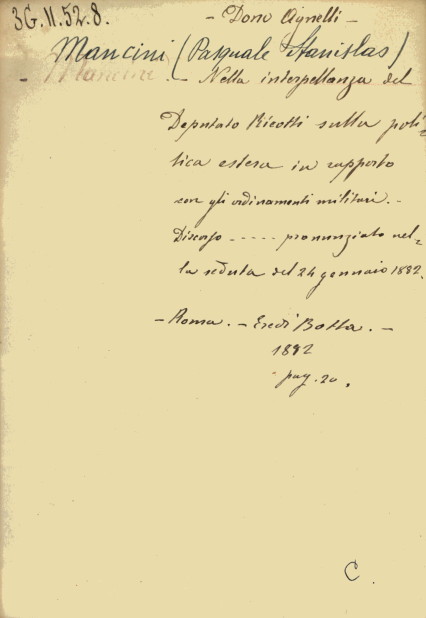 3G.N.52.8.
- Dono Agnelli -
Mancini (Pasquale Stanislas)
- Mancini. - Nella interpellanza del
Deputato Ricotti sulla poli-
tica estera in rapporto
con gli ordinamenti militari. -
Discorso ----- pronunziato nel-
la seduta del 24 gennaio 1882.
- Roma. - Eredi Botta. -
1882
pag. 20.
C.